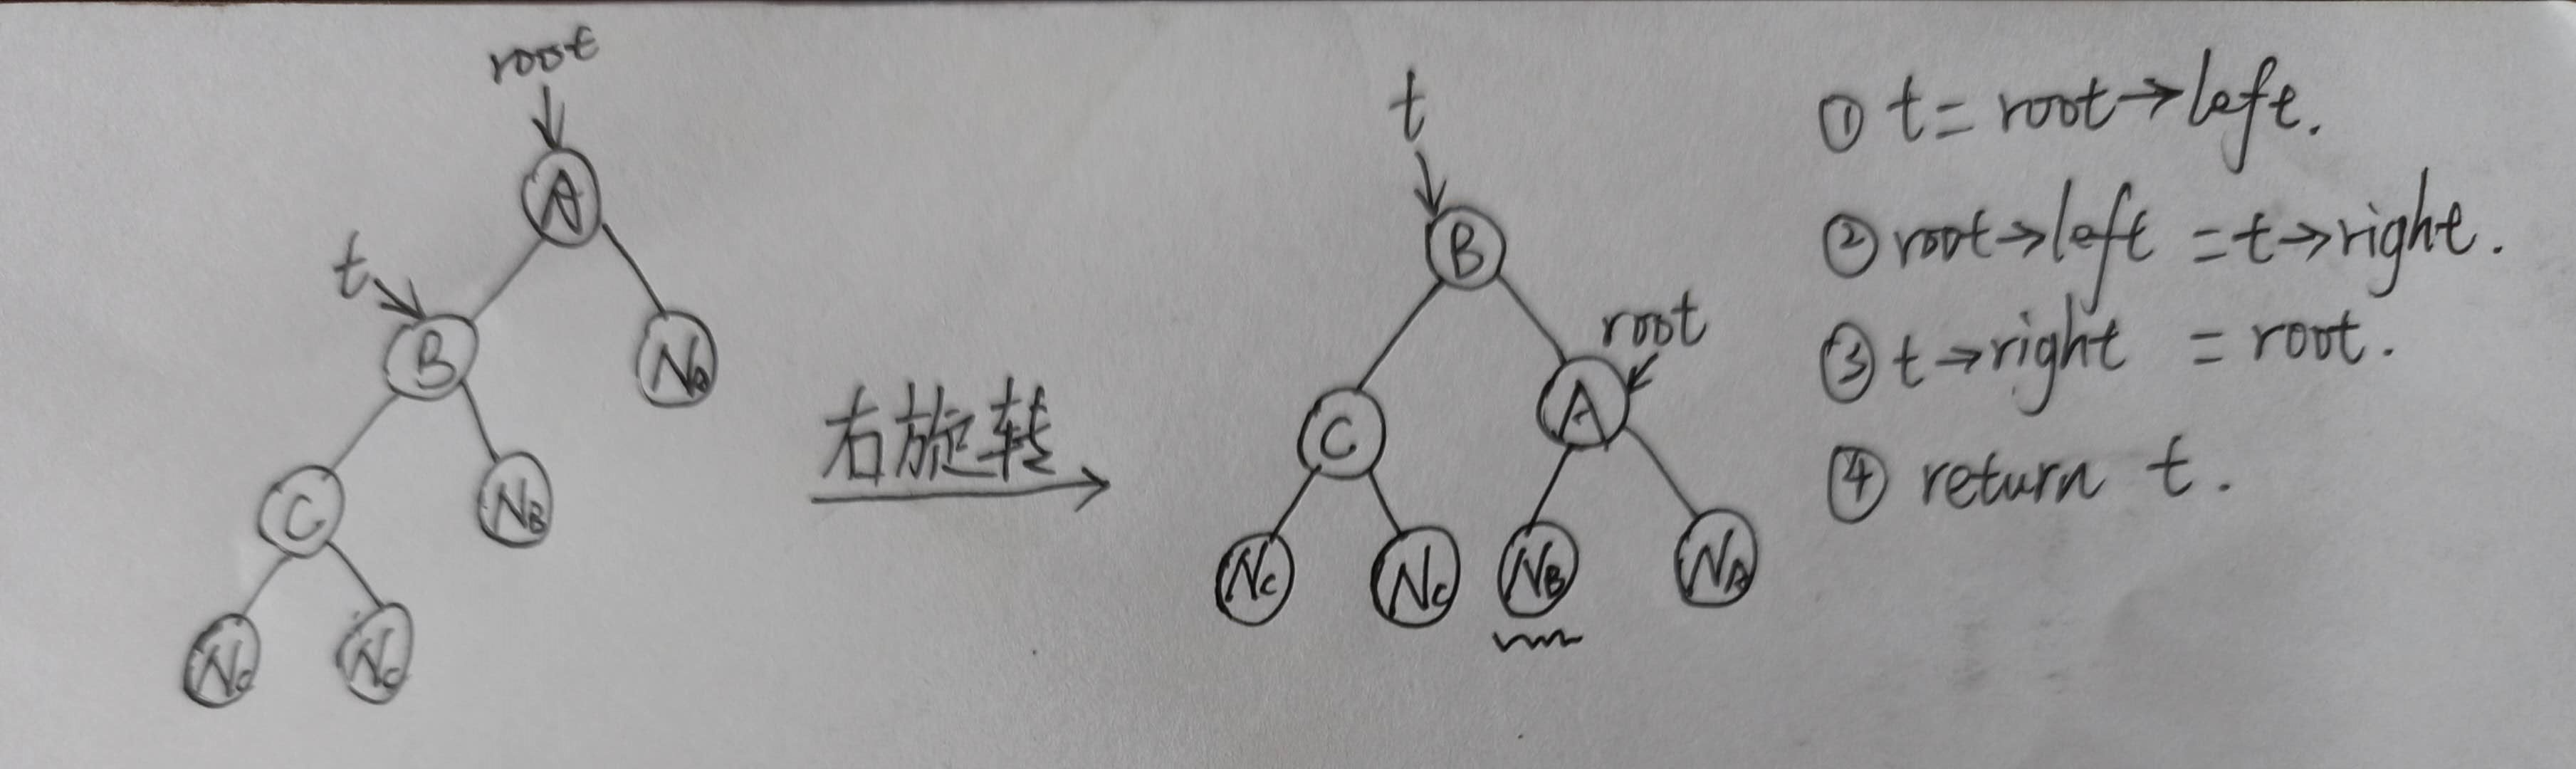 root
A
t
B
NA
C
NB
Nc
Nc
右旋转
t
B
root
C
A
Nc
Nc
NB
NA
① t = root→left.
② root→left = t→right.
③ t→right = root.
④ return t.